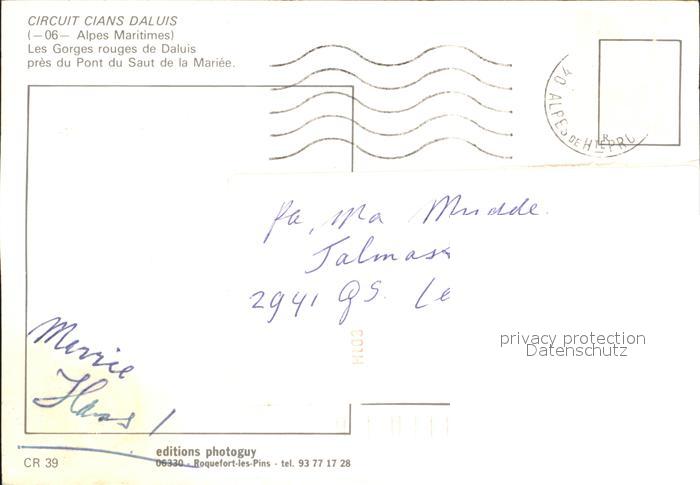 CIRCUIT CIANS DALUIS
(—06— Alpes Maritimes)
Les Gorges rouges de Daluis
près du Pont du Saut de la Mariée.
04
ALPES DE HTE PRO
R
Ma
2941 GS. Le
privacy protection
Datenschutz
Hans !
editions photoguy
06330 - Roquefort-les-Pins - tel. 93 77 17 28
CR 39